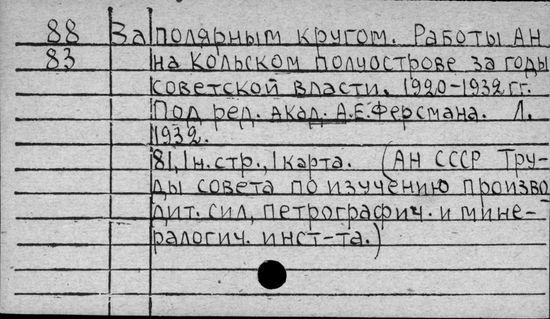 88 Заполярным кругом. Работы АН
83 на Кольском полуострове за годы
советской власти. 1920-1932 гг.
Под ред. акад. А.Е.Ферсмана. Л.
1932.
81, 1н.стр., 1 карта. (АН СССР Тру-
ды совета по изучению произво
дит. сил, петрографич. и мине-
ралогич. инст-та.)